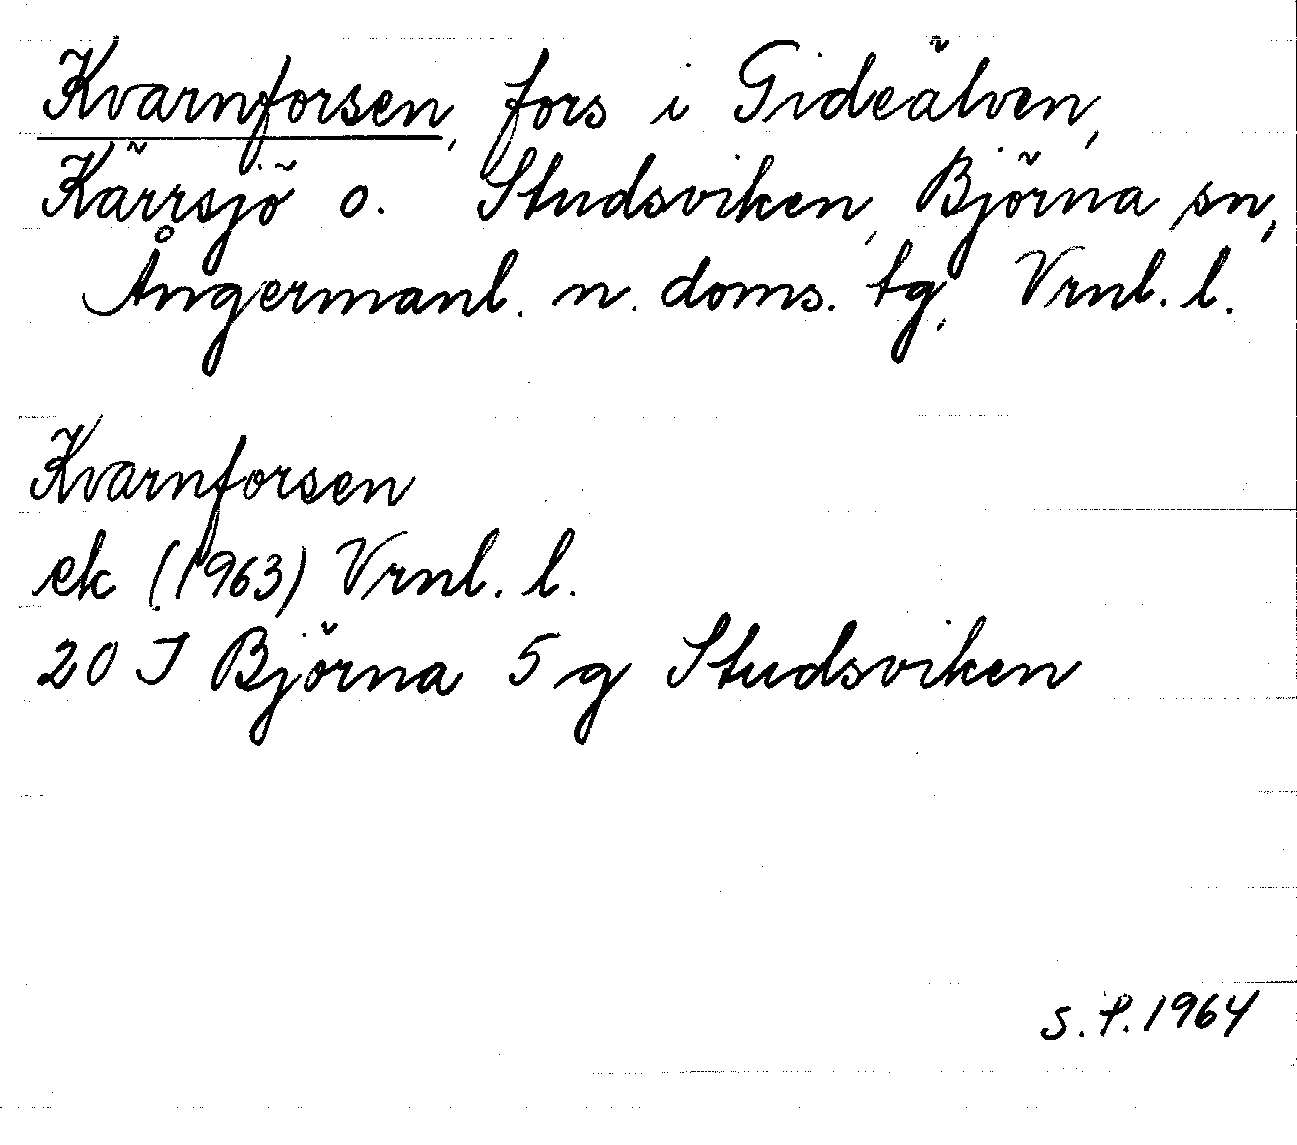 Kvarnforsen, fors i Gideälven,
Kärrsjö o. Studsviken, Björna sn,
Ångermanl. n. doms. tg, Vrnl. l.
Kvarnforsen
ek (1963) Vrnl. l.
20 I Björna 5 g Studsviken
S. P. 1964